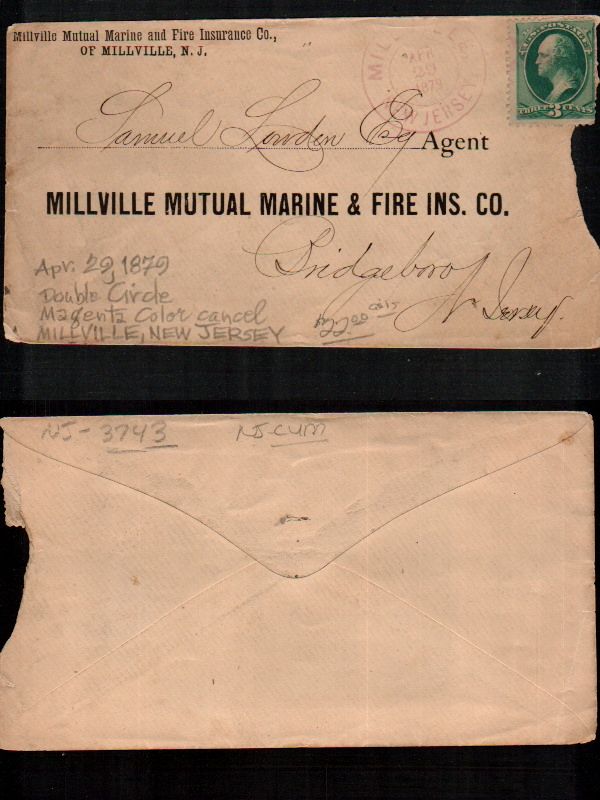 Millville Mutual Marine and Fire Insurance Co.,
OF MILLVILLE, N. J.
MILLVILLE
APR
29
1879
NEW JERSEY.
U.S. POSTAGE
THREE 3 CENTS
Samuel Lowden Esq Agent
MILLVILLE MUTUAL MARINE & FIRE INS. CO.
Bridgeboro
N Jersey.
Apr. 29, 1879
Double Circle
Magenta Color cancel
MILLVILLE, NEW JERSEY
22.00
NJ-3743 NJ-CUM